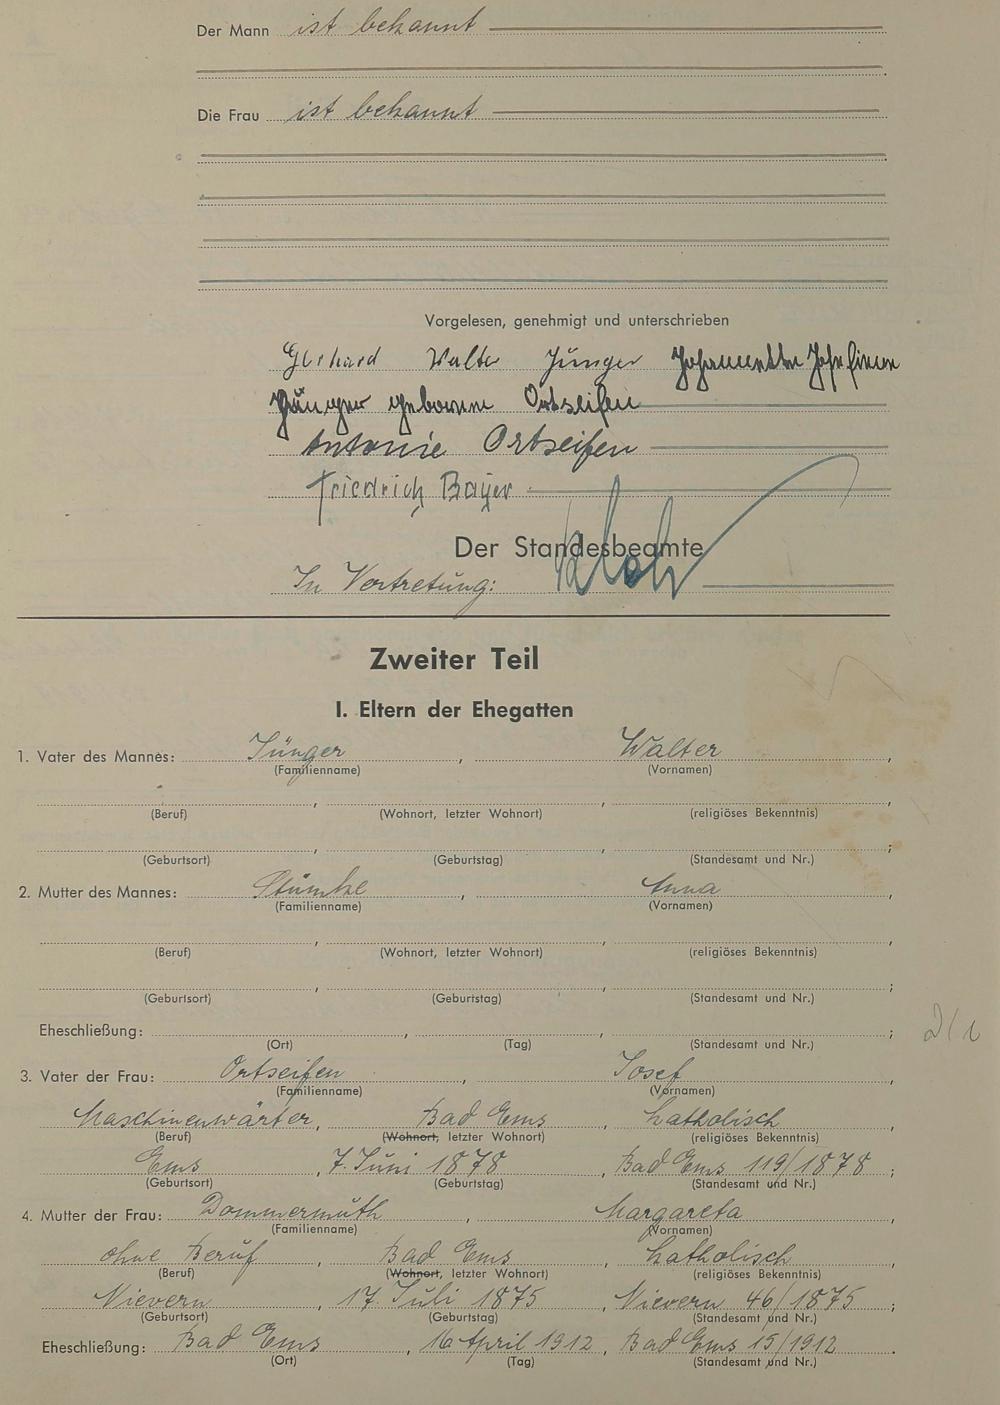 Der Mann ist bekannt
Die Frau ist bekannt
Vorgelesen, genehmigt und unterschrieben
Gerhard Walter Jünger Johannette Josefine
Jünger geborene Ortseifen
Antonie Ortseifen
Friedrich Bayer
Der Standesbeamte
In Vertretung:
Zweiter Teil
I. Eltern der Ehegatten
1. Vater des Mannes: Jünger, Walter,
(Familienname) (Vornamen)
, , ,
(Beruf) (Wohnort, letzter Wohnort) (religiöses Bekenntnis)
, , ;
(Geburtsort) (Geburtstag) (Standesamt und Nr.)
2. Mutter des Mannes: Stümke, Anna,
(Familienname) (Vornamen)
, , ,
(Beruf) (Wohnort, letzter Wohnort) (religiöses Bekenntnis)
, , ;
(Geburtsort) (Geburtstag) (Standesamt und Nr.)
Eheschließung: , , ;
(Ort) (Tag) (Standesamt und Nr.)
3. Vater der Frau: Ortseifen, Josef,
(Familienname) (Vornamen)
Maschinenwärter, Bad Ems, katholisch
(Beruf) (Wohnort, letzter Wohnort) (religiöses Bekenntnis)
Ems, 7. Juni 1878, Bad Ems 119/1878;
(Geburtsort) (Geburtstag) (Standesamt und Nr.)
4. Mutter der Frau: Dommermuth, Margareta,
(Familienname) (Vornamen)
ohne Beruf, Bad Ems, katholisch
(Beruf) (Wohnort, letzter Wohnort) (religiöses Bekenntnis)
Nievern, 17. Juli 1875, Nievern 46/1875;
(Geburtsort) (Geburtstag) (Standesamt und Nr.)
Eheschließung: Bad Ems, 16 April 1912, Bad Ems 15/1912
(Ort) (Tag) (Standesamt und Nr.)